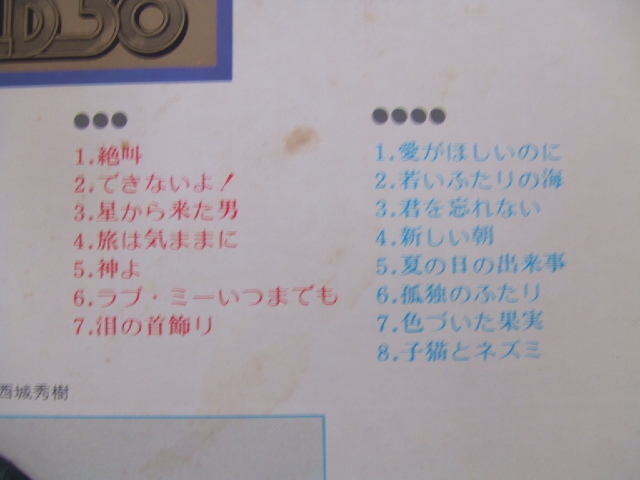 LD 50
●●●
1.絶叫
2.できないよ!
3.星から来た男
4.旅は気ままに
5.神よ
6.ラブ・ミーいつまでも
7.泪の首飾り
●●●●
1.愛がほしいのに
2.若いふたりの海
3.君を忘れない
4.新しい朝
5.夏の日の出来事
6.孤独のふたり
7.色づいた果実
8.子猫とネズミ
西城秀樹